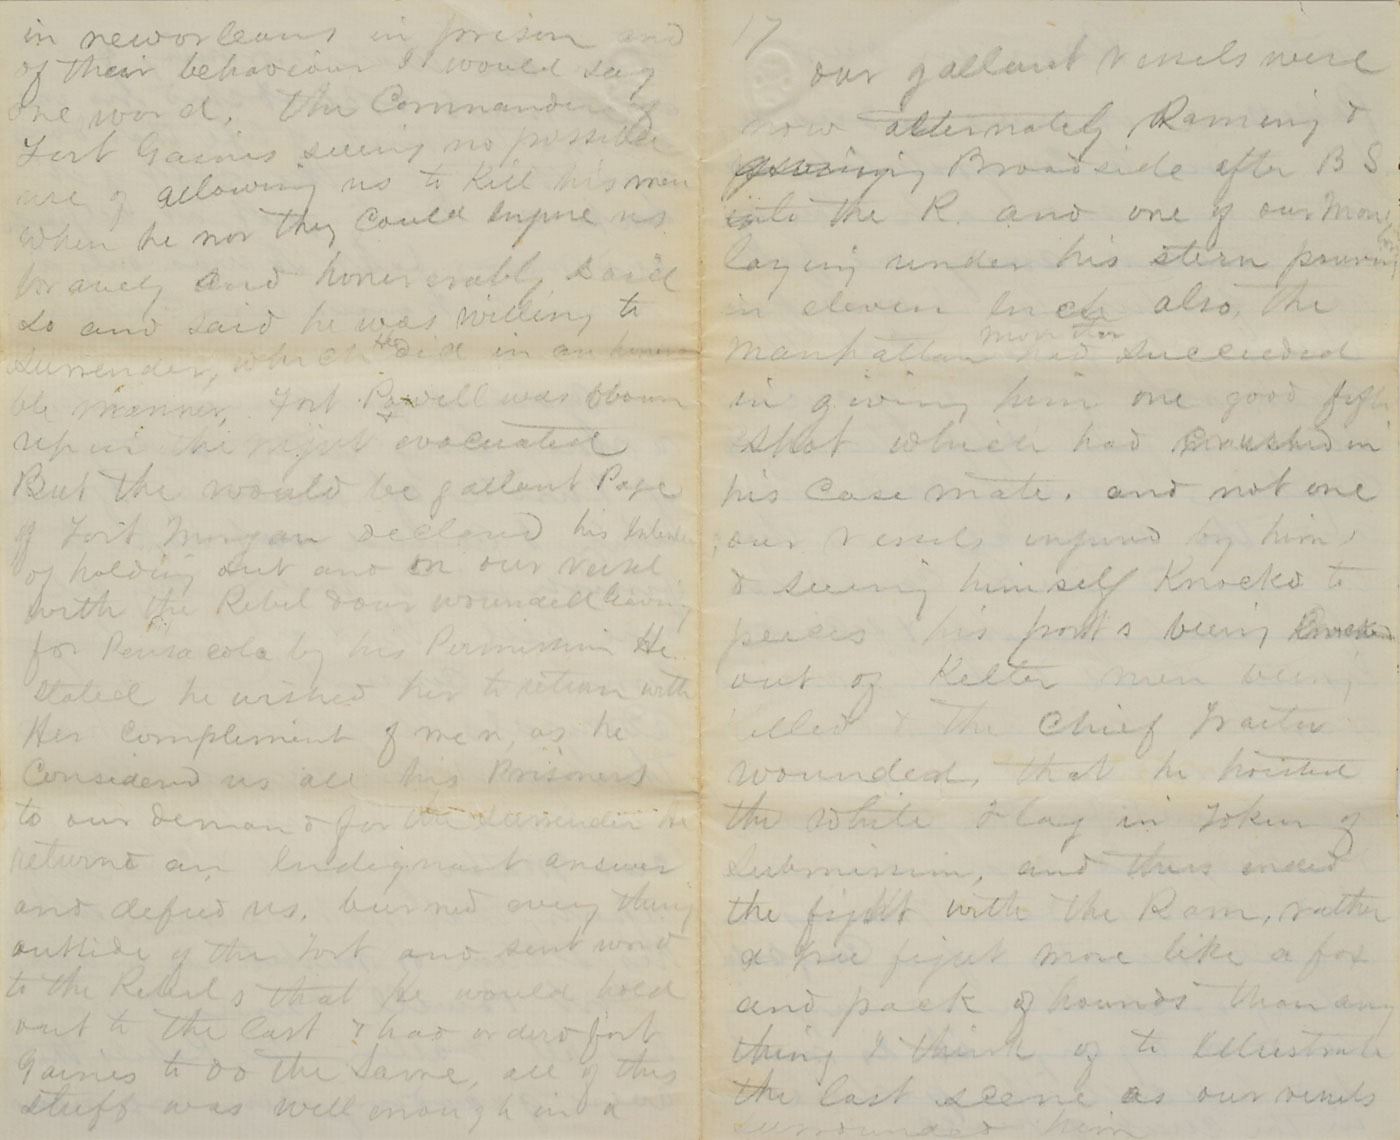 in neworleans in prison and
of their behaviour I would say
one word. The Commander of
Fort Gaines seeing no possible
use of allowing us to Kill his men
when he nor they could Injure us
bravely and honererably said
so and said he was willing to
surrender, which He did in an honora
ble manner, Fort Powell was blown
up in the night evacuated
But the would be gallant Page
of Fort Morgan declared his
of holding out and on our vessel
with the Rebel & our wounded leaving
for Pensacola by his Permission He
stated he wished her to return with
Her compliment of men, as he
Considered us all his Prisoners
to our demand for the surrender he
returnd an Indignant answer
and defied us. burned every thing
outside of the Fort and sent word
to the Rebels that he would hold
out to the last & had orderd fort
Gaines to do the same, all of this
stuff was well enough in a
17
our gallant vessels were
now alternately Raming &
Broadside after B S
into the R. and one of our Monitors
laying under his stern pouring
in eleven Inch also, the
Manhattan monitor had succeeded
in giving him one good fifteen
shot which had crushed in
his Case mate. and not one
our vessels injured by him,
& seeing himself Knockd to
peices his ports being Knocked
out of Kelter men being
killed & the Chief Traitor
wounded, that he hoisted
the White Flag in Token of
Submission, and thus ended
the fight with the Ram, rather
a free fight more like a fox
and pack of hounds than any
thing I think of to Illustrate
the last scene as our vessels
surrounded him